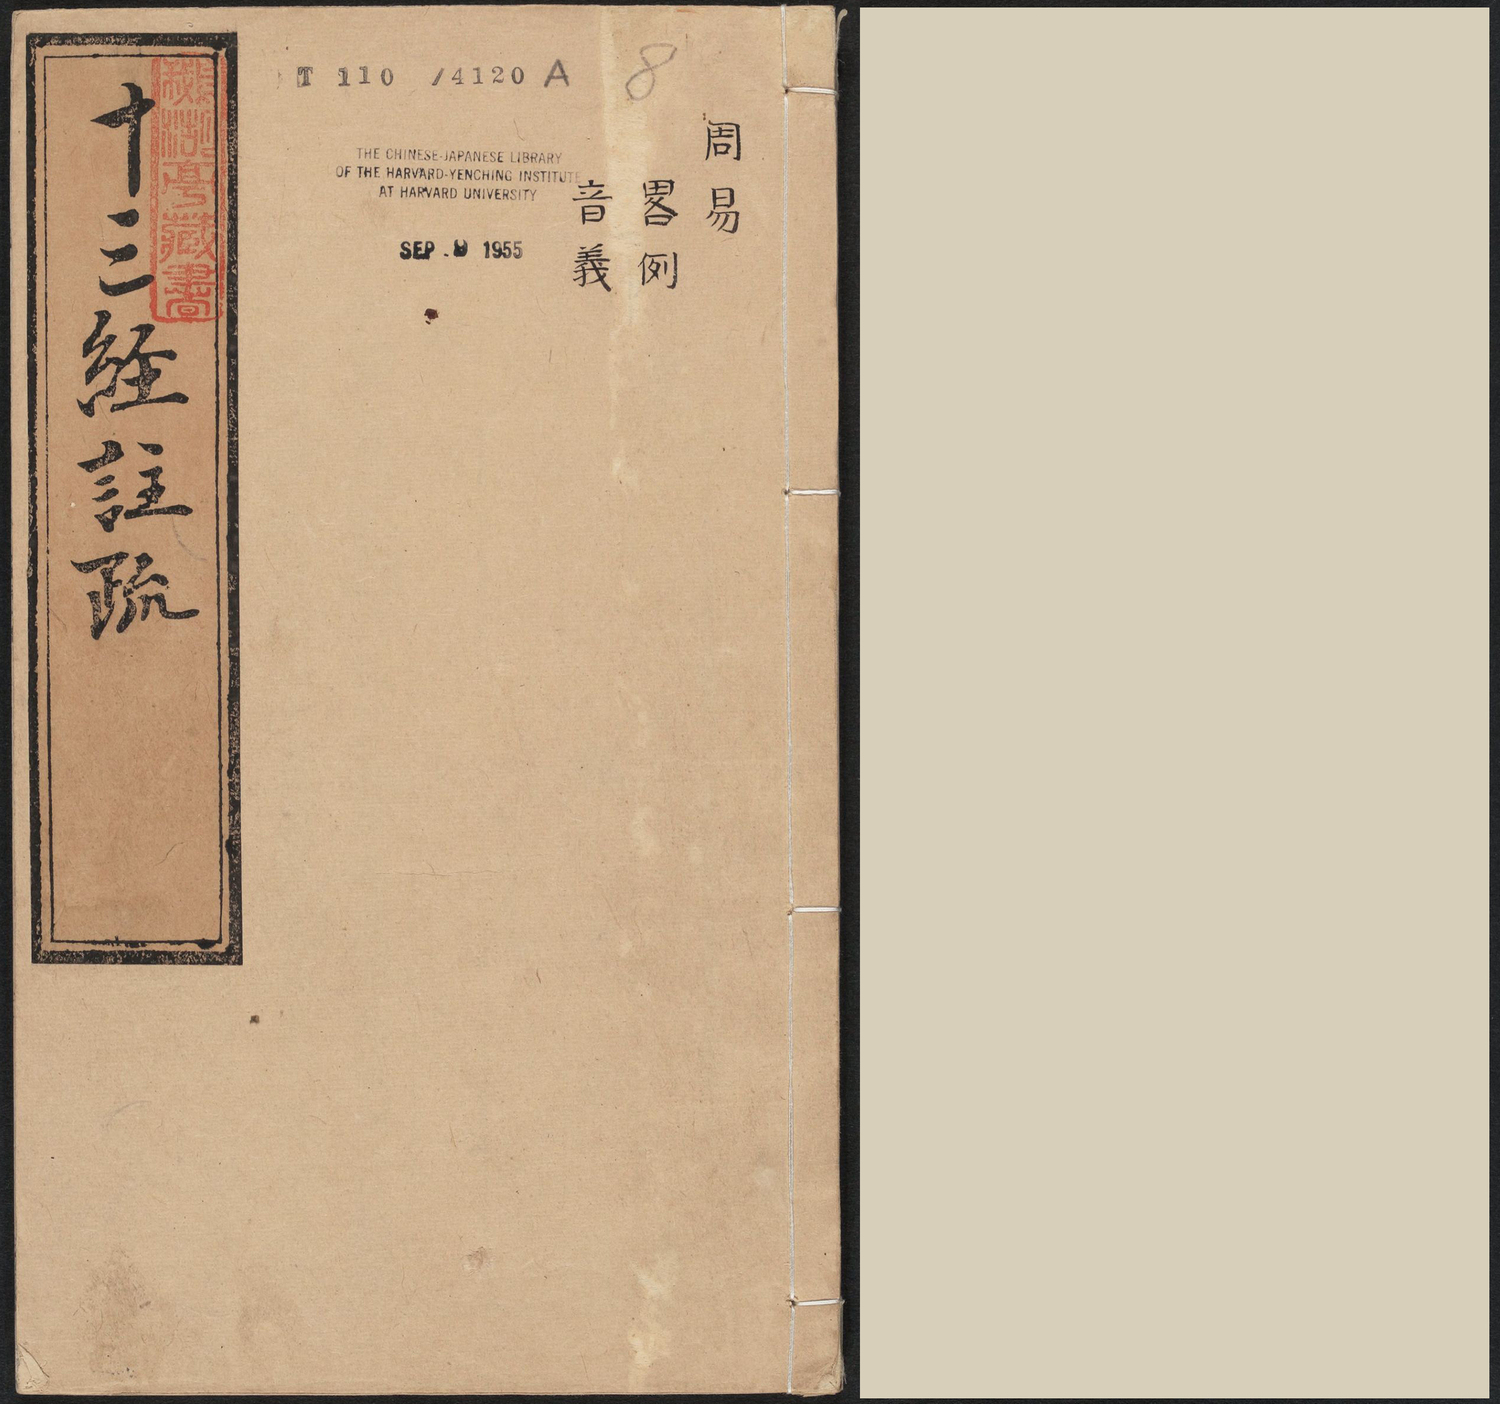 T 110 /4120 A
8
THE CHINESE-JAPANESE LIBRARY
OF THE HARVARD-YENCHING INSTITUTE
AT HARVARD UNIVERSITY
SEP. 9 1955
周易
畧例
音義
十三經註疏
亭藏書